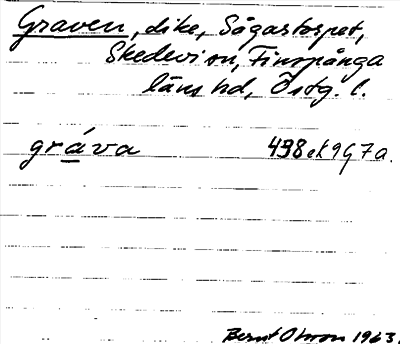 Graven, dike, Sågastorpet,
Skedevi sn, Finspånga
läns hd, Östg. l.
gráva 498 ek 9G7a.
Bernt Olsson 1963.